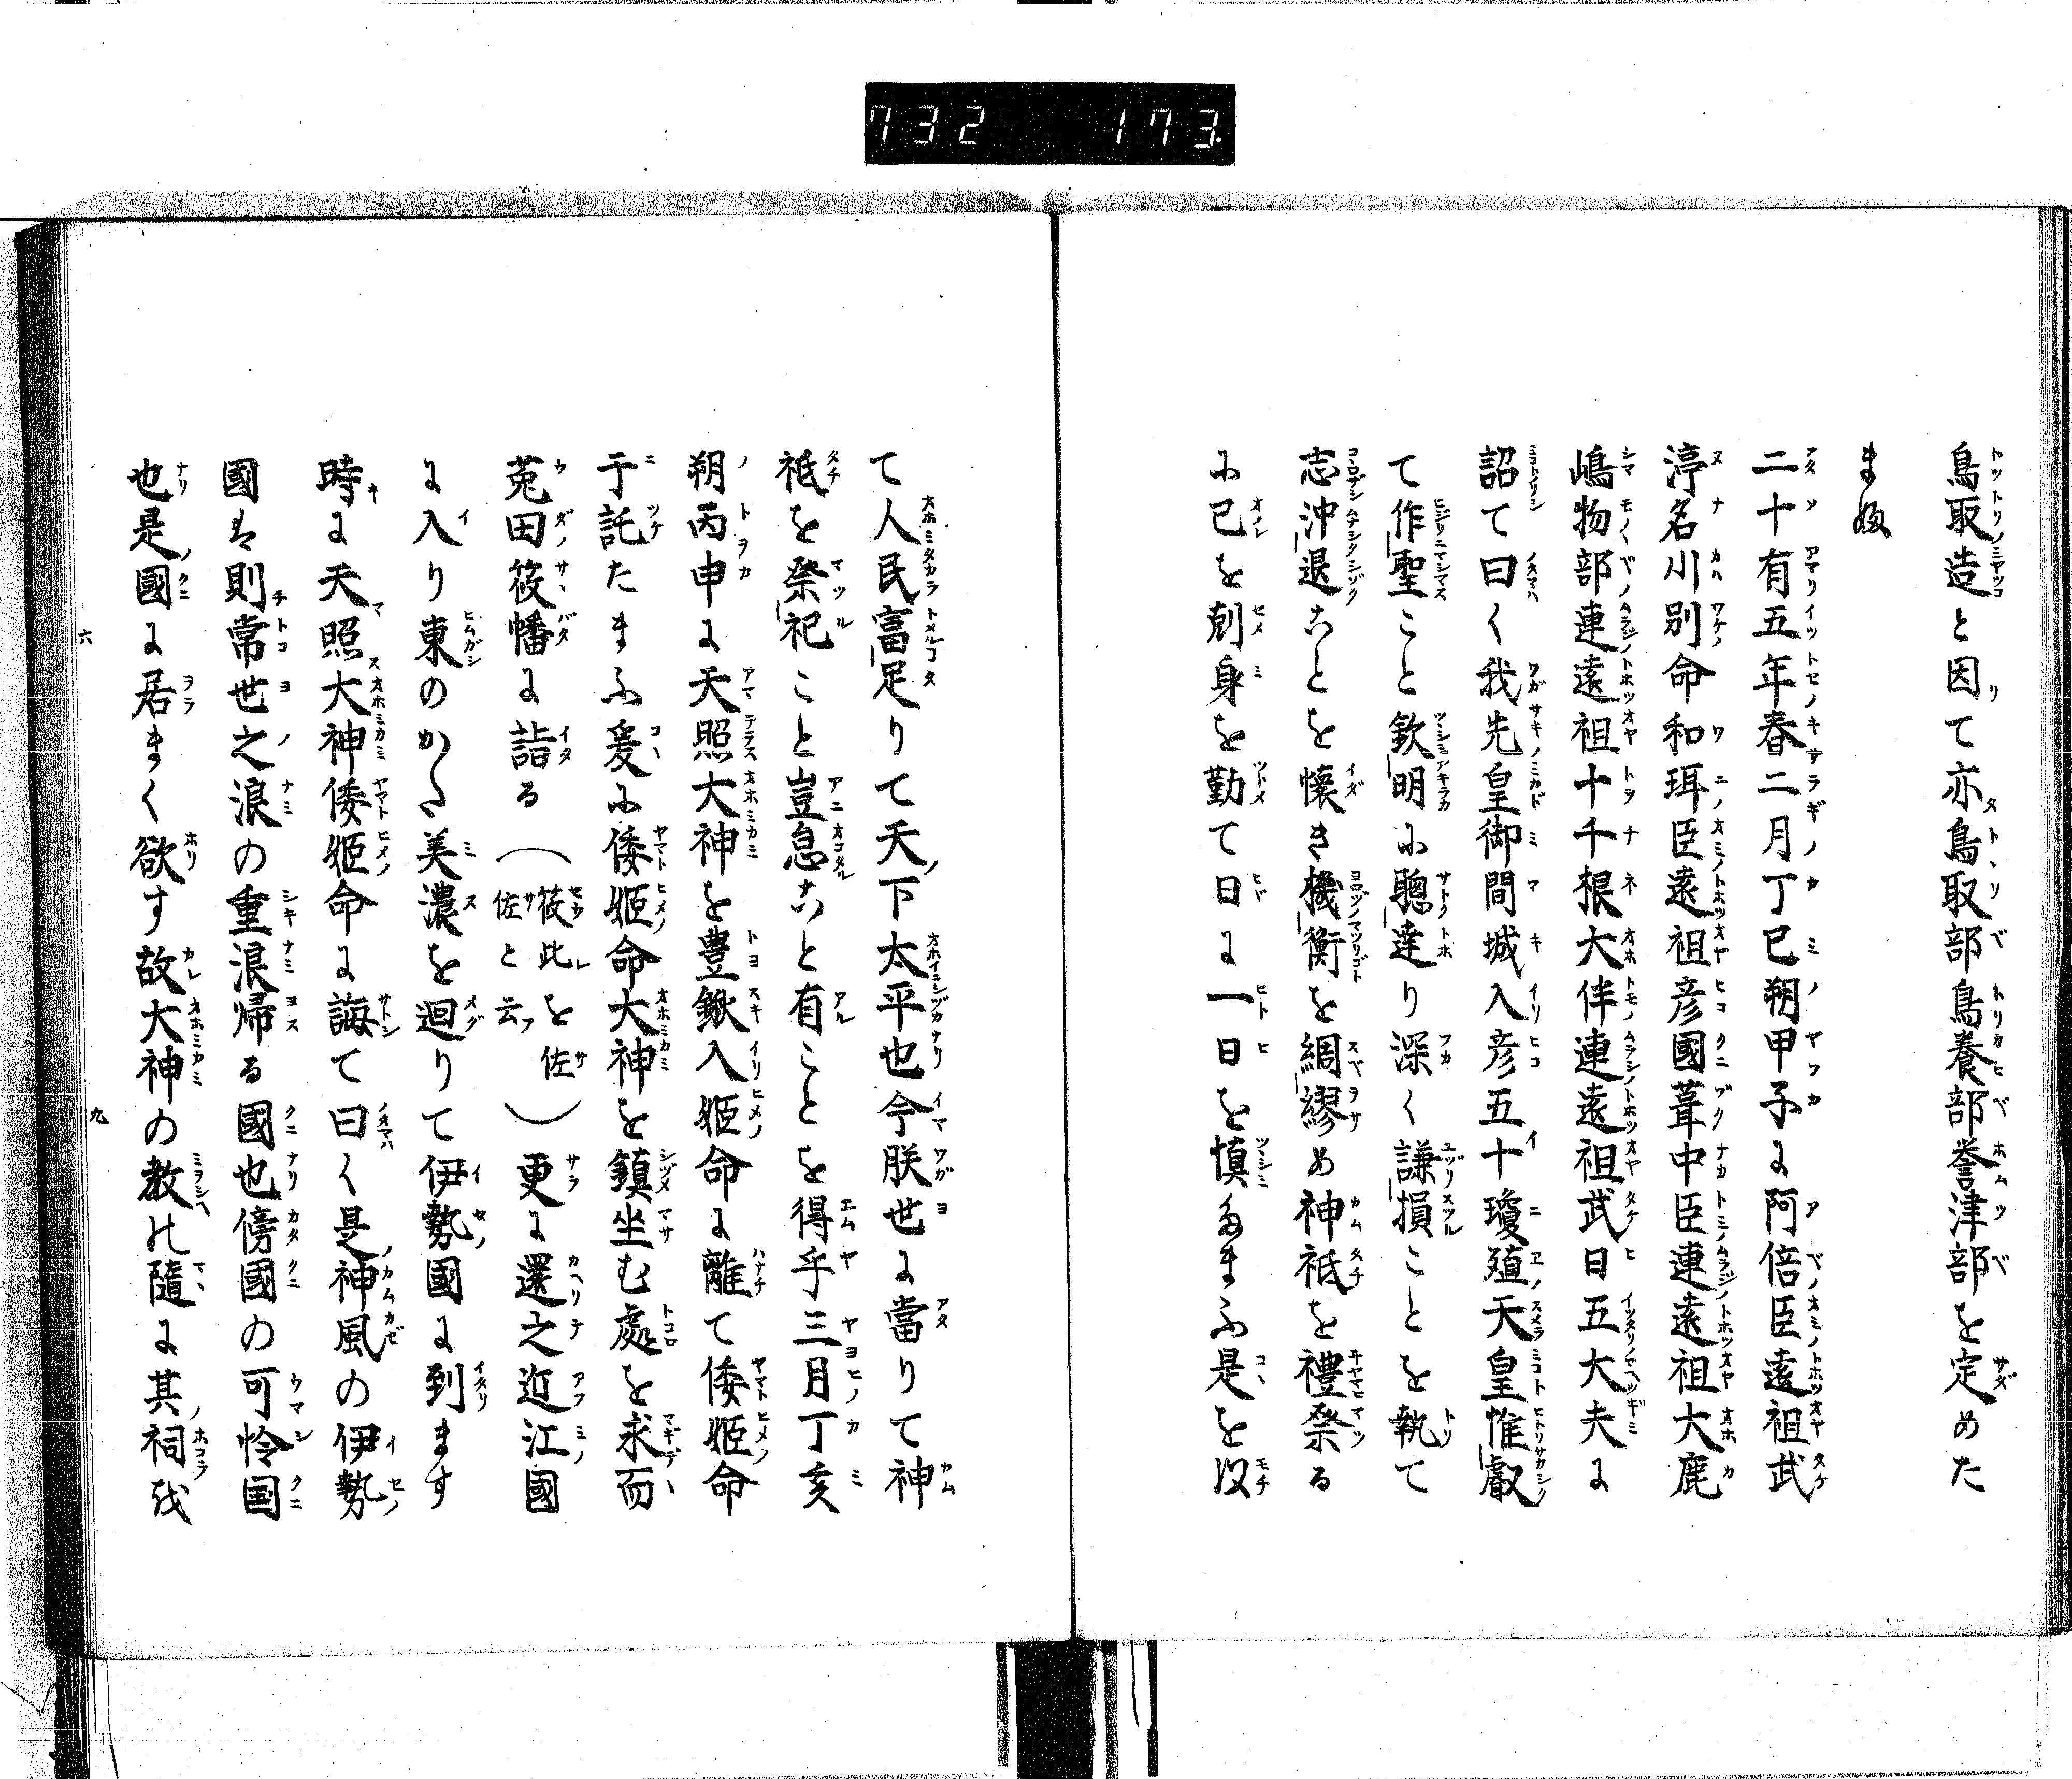 732 173
鳥取造と因て亦鳥取部鳥養部誉津部を定めた
まふ
二十有五年春二月丁巳朔甲子に阿倍臣遠祖武
渟名川別命和珥臣遠祖彦國葺中臣連遠祖大鹿
嶋物部連遠祖十千根大伴連遠祖武日五大夫に
詔て曰く我先皇御間城入彦五十瓊殖天皇惟叡
て作聖こと欽明に聰達り深く謙損ことを執て
志沖退ことを懐き機衡を綢繆め神祇を禮祭る
に己を剋身を勤て日に一日を慎たまふ是を以
て人民富足りて天下太平也今朕世に當りて神
祇を祭祀こと豈怠こと有ことを得乎三月丁亥
朔丙申に天照大神を豊鍬入姫命に離て倭姫命
于託たまふ爰に倭姫命大神を鎮坐む處を求而
菟田筱幡に詣る（筱此を佐佐と云）更に還之近江國
に入り東のかた美濃を廻りて伊勢國に到ます
時に天照大神倭姫命に誨て曰く是神風の伊勢
國は則常世之浪の重浪帰る國也傍國の可怜国
也是國に居まく欲す故大神の教の隨に其祠を
六
九